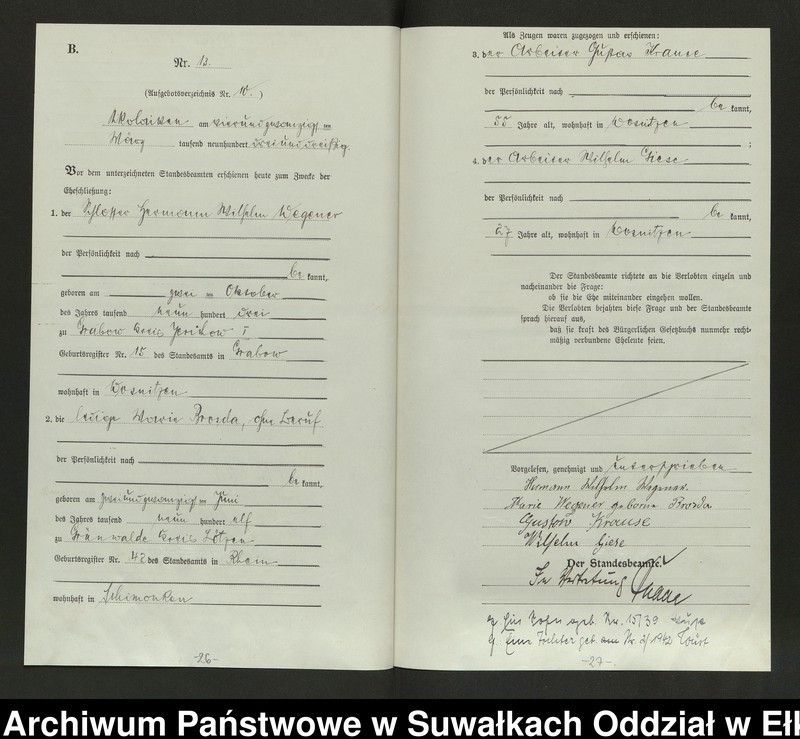 B.
Nr. 13.
(Aufgebotsverzeichnis Nr. 10.)
Nikolaiken am vierundzwanzigsten
März tausend neunhundert dreiunddreißig.
Vor dem unterzeichneten Standesbeamten erschienen heute zum Zwecke der
Eheschließung:
1. der Schlosser Hermann Wilhelm Wegener
der Persönlichkeit nach
be kannt,
geboren am zwei ten Oktober
des Jahres tausend neun hundert drei
zu Grabow Kreis Jerichow I
Geburtsregister Nr. 15 des Standesamts in Grabow
wohnhaft in Wosnitzen
2. die ledige Marie Brosda, ohne Beruf
der Persönlichkeit nach
be kannt,
geboren am zweiundzwanzigsten Juni
des Jahres tausend neun hundert elf
zu Grünwalde Kreis Lötzen
Geburtsregister Nr. 48 des Standesamts in Rhein
wohnhaft in Schimonken
-26-
Als Zeugen waren zugezogen und erschienen:
3. der Arbeiter Gustav Krause
der Persönlichkeit nach
be kannt,
55 Jahre alt, wohnhaft in Wosnitzen
;
4. der Arbeiter Wilhelm Giese
der Persönlichkeit nach
be kannt,
27 Jahre alt, wohnhaft in Wosnitzen
Der Standesbeamte richtete an die Verlobten einzeln und
nacheinander die Frage:
ob sie die Ehe miteinander eingehen wollen.
Die Verlobten bejahten diese Frage und der Standesbeamte
sprach hierauf aus,
daß sie kraft des Bürgerlichen Gesetzbuchs nunmehr recht-
mäßig verbundene Eheleute seien.
Vorgelesen, genehmigt und unterschrieben
Hermann Wilhelm Wegener
Marie Wegener geborne Brosda
Gustav Krause
Wilhelm Giese
Der Standesbeamte.
In Vertretung
Ein Sohn geb. Nr. 15/39
Eine Tochter geb. am Nr. 1942
-27-
Archiwum Państwowe w Suwałkach Oddział w Ełk